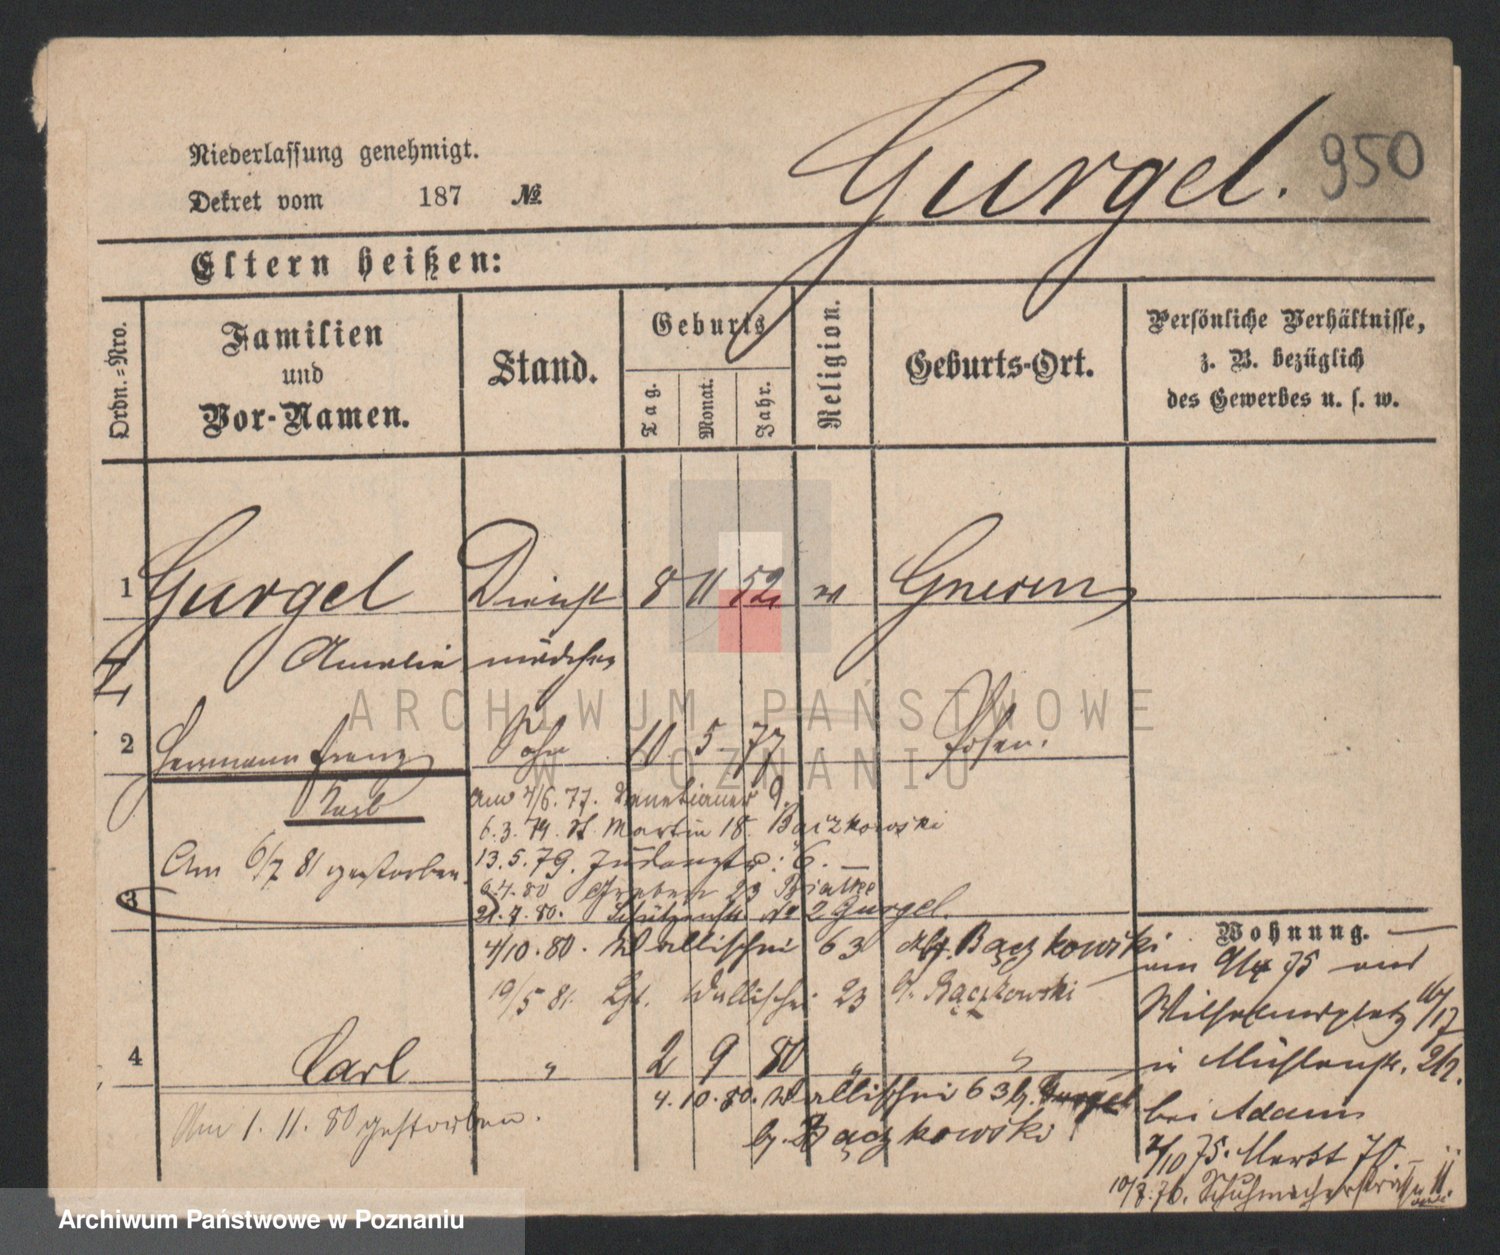 Niederlassung genehmigt.
Dekret vom 187 №
Gurgel. 950
Eltern heißen:
Ordn.=Nro.
Familien
und
Vor-Namen.
Stand.
Geburts
Tag.
Monat.
Jahr.
Religion.
Geburts-Ort.
Persönliche Verhältnisse,
z. B. bezüglich
des Gewerbes u. s. w.
1 Gurgel Dienst 8 11 52 Gnesen
Amalie mädchen
2 Hermann Franz Sohn 10 5 77 Posen.
Karl
am 4/6. 77. Venetianer 9.
6. 3. 79. St. Martin 18. Baczkowski
13. 5. 79. 6. —
Am 6/7 81 gestorben.
6.4.80 Graben 23
3 21. 7. 80. Schützenstr No 2 Gurgel.
4/10. 80. Wallischei 63 Baczkowski
19/5 81. Wallischei 23 Baczkowski
Wohnung. —
am 9/4 75 auf
Wilhelmsplatz 16/17
in Mühlenstr.
bei Adam
2/10 75. Markt 70 —
10/7. 76. Schuhmacherstraße 11.
4 Carl " 2 9 80 " "
4. 10. 80. Wallischei 63 b. Gurgel
b. Baczkowski
Am 1. 11. 80 gestorben.
ARCHIWUM PAŃSTWOWE
W POZNANIU
Archiwum Państwowe w Poznaniu